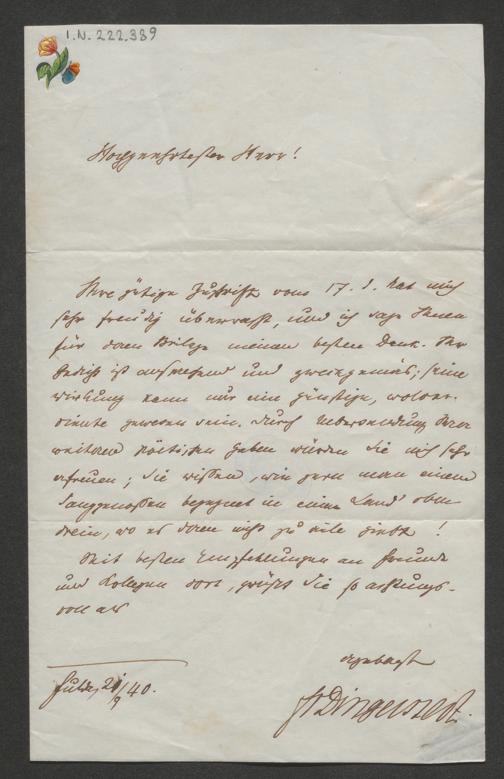 I.N. 222.389
Hochgeehrtester Herr!
Ihre gütige Zuschrift vom 17. d. hat mich
sehr freudig überrascht, und ich sage Ihnen
für deren Beilage meinen besten Dank. Ihr
Gedicht ist und zweckgemäß; seine
Wirkung kann nur eine günstige, wolver-
diente gewesen sein. Durch Uebersendung Ihrer
weiteren poetischen Gaben würden Sie mich sehr
erfreuen; Sie wissen, wie gern man einem
Sanggenossen begegnet in einem Land oben-
drein, wo es deren nicht zu viele giebt!
Mit besten Empfehlungen an Freunde
und Kollegen dort, grüßt Sie so achtungs-
voll als
ergebenst
Fulda, 21/9 40.
FDingelstedt.